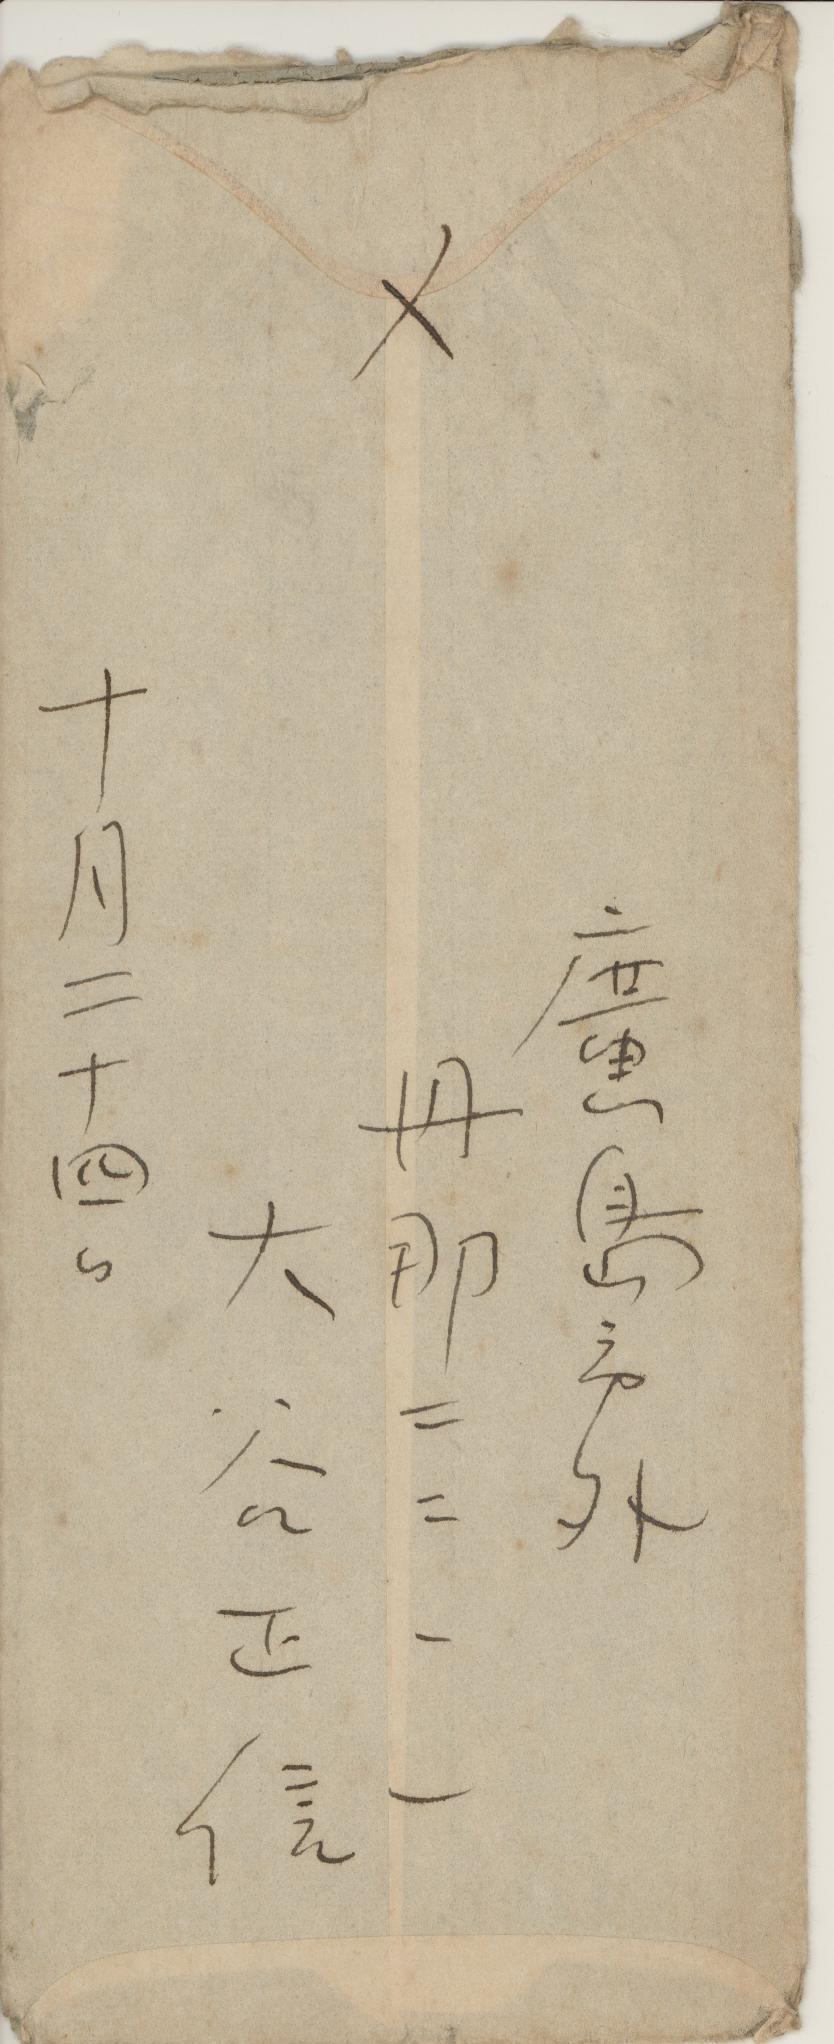 〆
廣島市外
丹那二二一一
大谷正信
十月二十四日